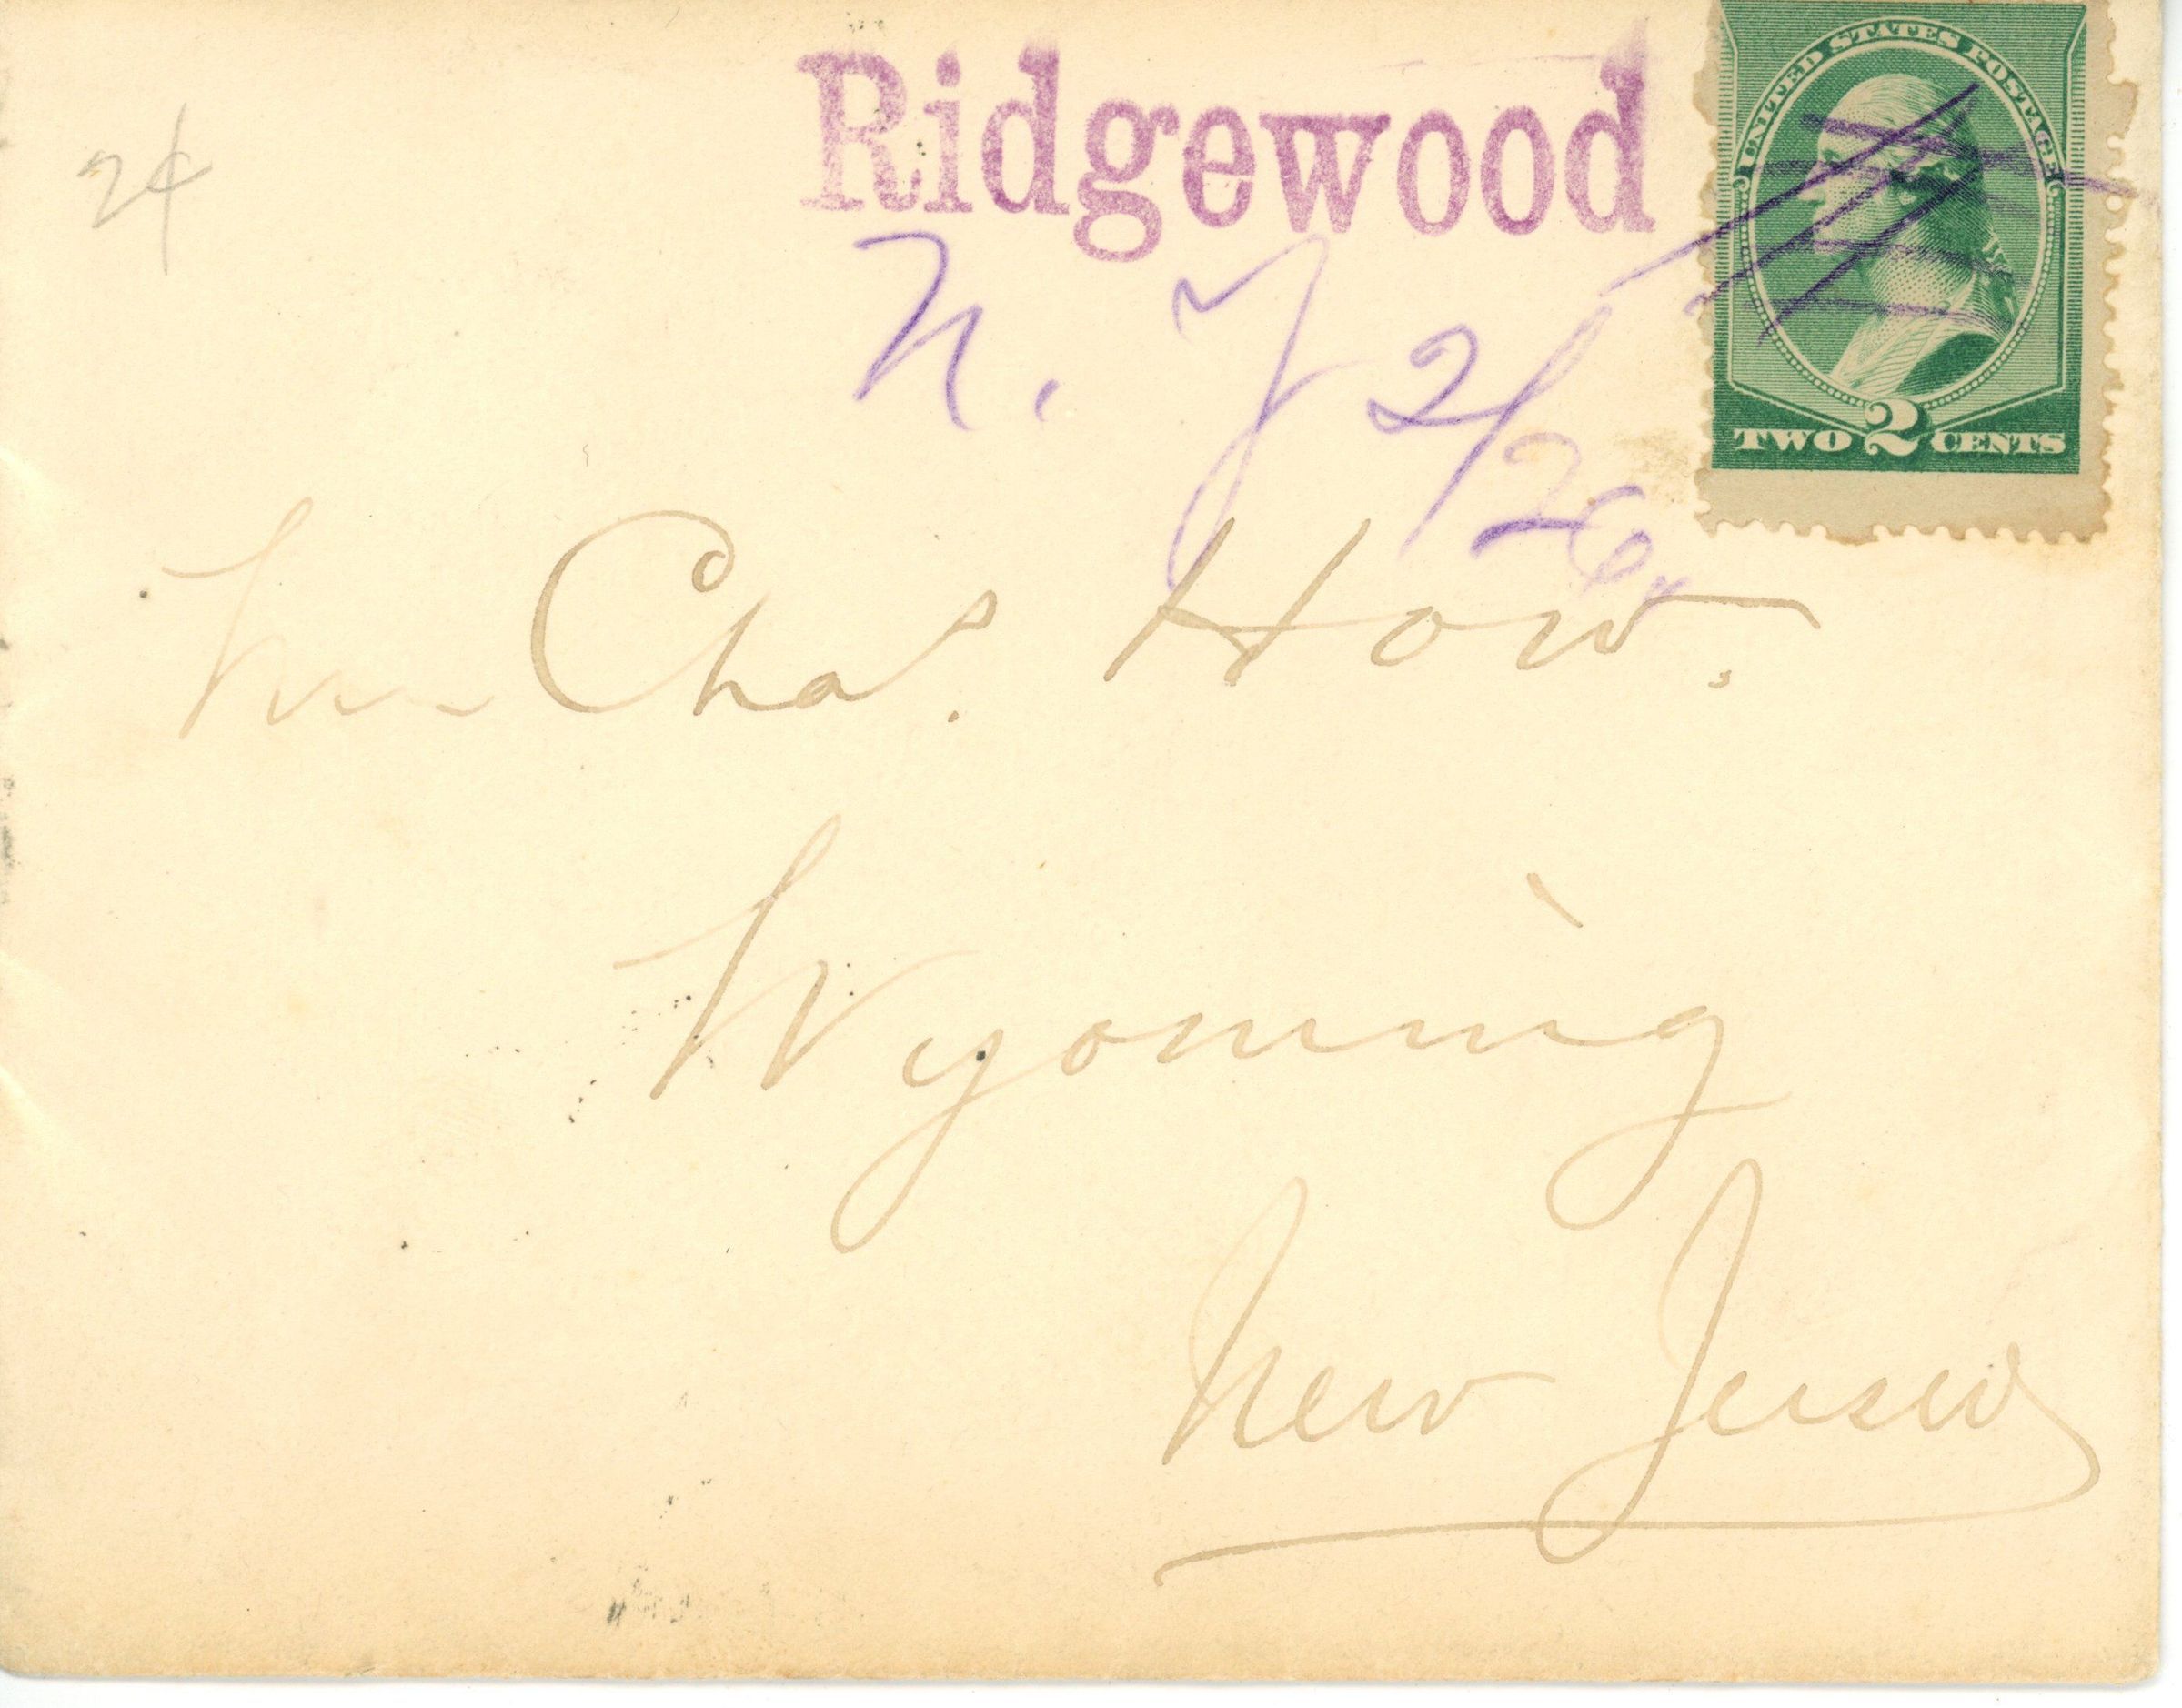 2¢
Ridgewood
N. J 2/26
UNITED STATES POSTAGE
TWO 2 CENTS
Mr Chas. How.
Wyoming
New Jersey